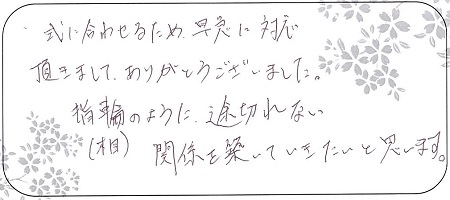 式に合わせるため、早急に対応
頂きまして、ありがとうございました。
指輪のように、途切れない
関係を築いていきたいと思います。